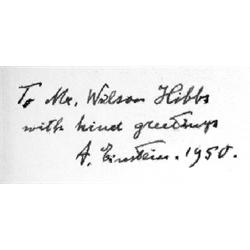 To Mr. Wilson Hibbs
with kind greetings
A. Einstein. 1950.